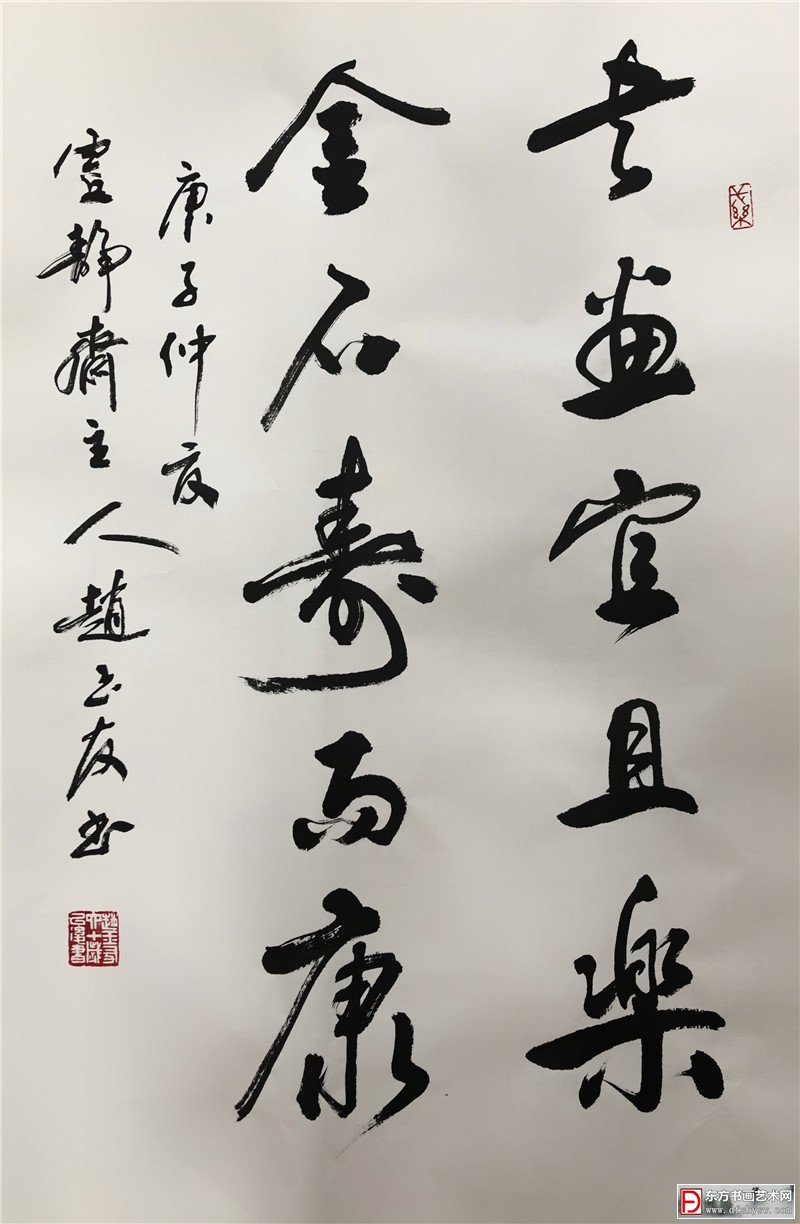 書畫宜且樂
金石壽而康
庚子仲夏
虛靜齋主人趙玉友書
东方书画艺术网
www.dfshysw.com